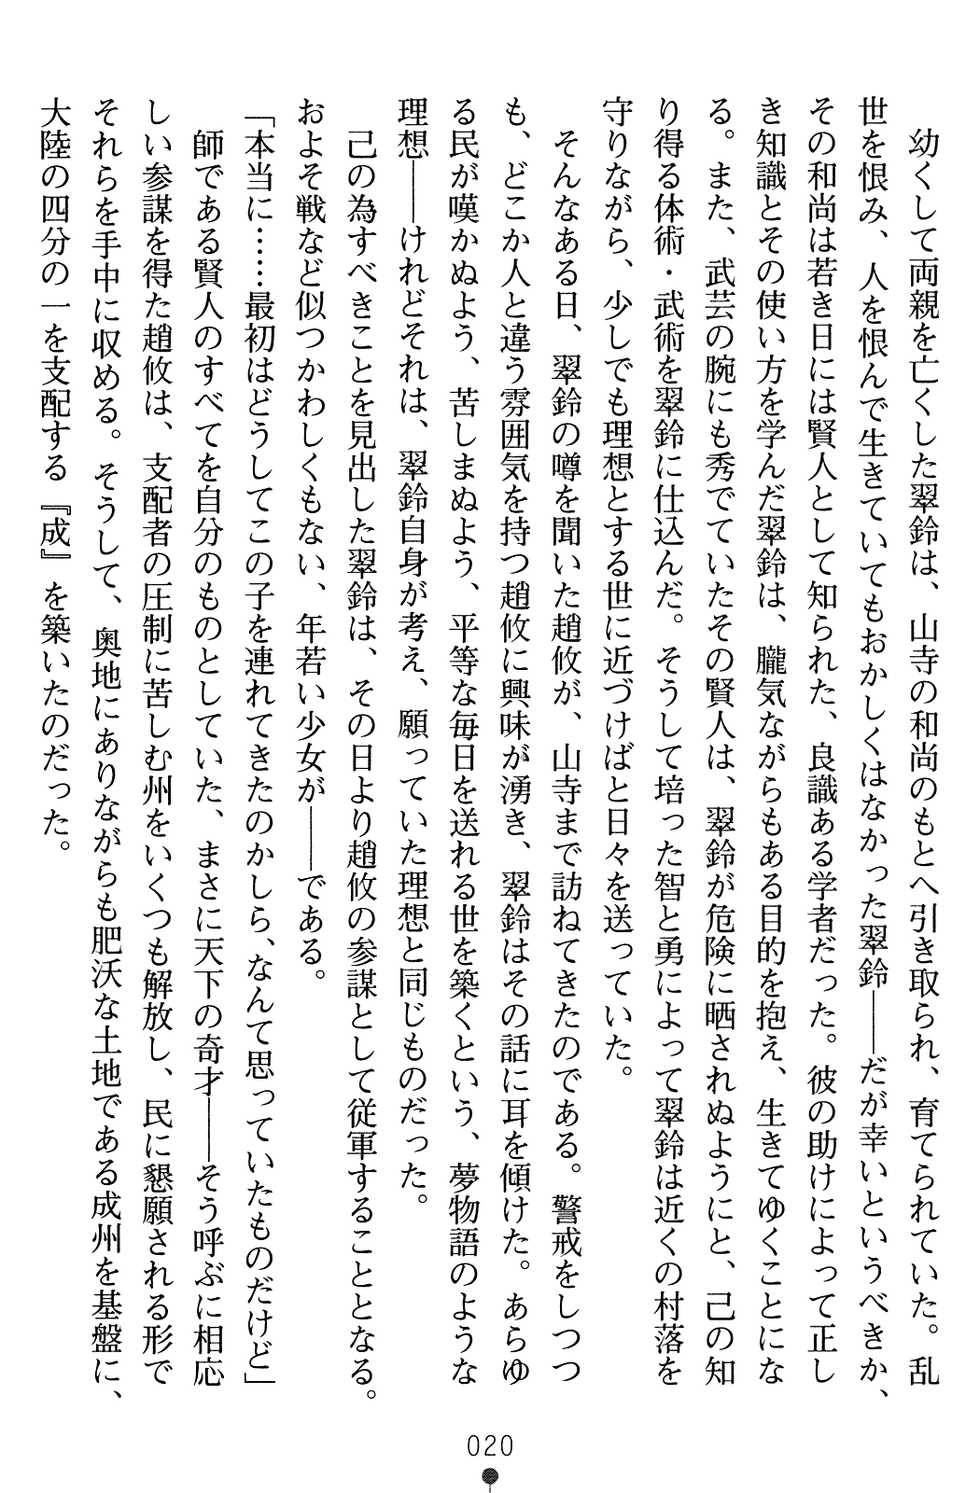 幼くして両親を亡くした翠鈴は、山寺の和尚のもとへ引き取られ、育てられていた。乱
世を恨み、人を恨んで生きていてもおかしくはなかった翠鈴――だが幸いというべきか、
その和尚は若き日には賢人として知られた、良識ある学者だった。彼の助けによって正し
き知識とその使い方を学んだ翠鈴は、朧気ながらもある目的を抱え、生きてゆくことにな
る。また、武芸の腕にも秀でていたその賢人は、翠鈴が危険に晒されぬようにと、己の知
り得る体術・武術を翠鈴に仕込んだ。そうして培った智と勇によって翠鈴は近くの村落を
守りながら、少しでも理想とする世に近づけばと日々を送っていた。
　そんなある日、翠鈴の噂を聞いた趙攸が、山寺まで訪ねてきたのである。警戒をしつつ
も、どこか人と違う雰囲気を持つ趙攸に興味が湧き、翠鈴はその話に耳を傾けた。あらゆ
る民が嘆かぬよう、苦しまぬよう、平等な毎日を送れる世を築くという、夢物語のような
理想――けれどそれは、翠鈴自身が考え、願っていた理想と同じものだった。
　己の為すべきことを見出した翠鈴は、その日より趙攸の参謀として従軍することとなる。
およそ戦など似つかわしくもない、年若い少女が――である。
「本当に……最初はどうしてこの子を連れてきたのかしら、なんて思っていたものだけど」
　師である賢人のすべてを自分のものとしていた、まさに天下の奇才――そう呼ぶに相応
しい参謀を得た趙攸は、支配者の圧制に苦しむ州をいくつも解放し、民に懇願される形で
それらを手中に収める。そうして、奥地にありながらも肥沃な土地である成州を基盤に、
大陸の四分の一を支配する『成』を築いたのだった。
020